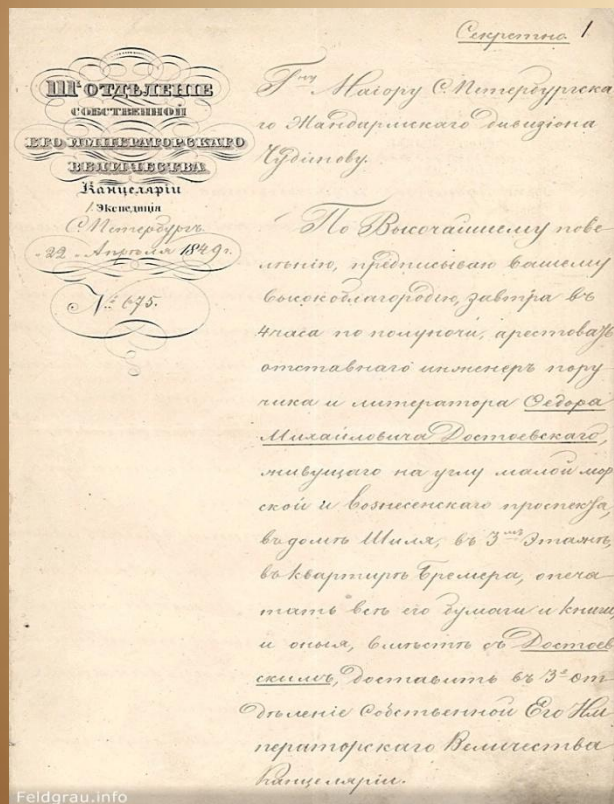 Секретно 1
III Отдѣленіе
СОБСТВЕННОЙ
ЕГО ИМПЕРАТОРСКАГО
ВЕЛИЧЕСТВА
Канцеляріи
1 Экспедиція
С. Петербургъ
"22" Апрѣля 1849 г.
№ 675.
Г.ну Маіору С. Петербургска
го Жандармскаго дивизіона
Чудинову.
По Высочайшему пове-
лѣнію, предписываю вашему
высокоблагородію, завтра въ
4 часа по полуночи, арестовать
отставнаго инженеръ пору-
чика и литератора Ѳедора
Михайловича Достоевскаго,
живущаго на углу малой мор
ской и вознесенскаго проспекта,
въ домѣ Шиля, въ 3мъ этажѣ,
въ квартирѣ Бремера, опеча-
тать всѣ его бумаги и книги,
и оныя, вмѣстѣ съ Достоев
скимъ, доставить въ 3е от
дѣленіе Собственной Его Им
ператорскаго Величества
Канцеляріи.
Feldgrau.info